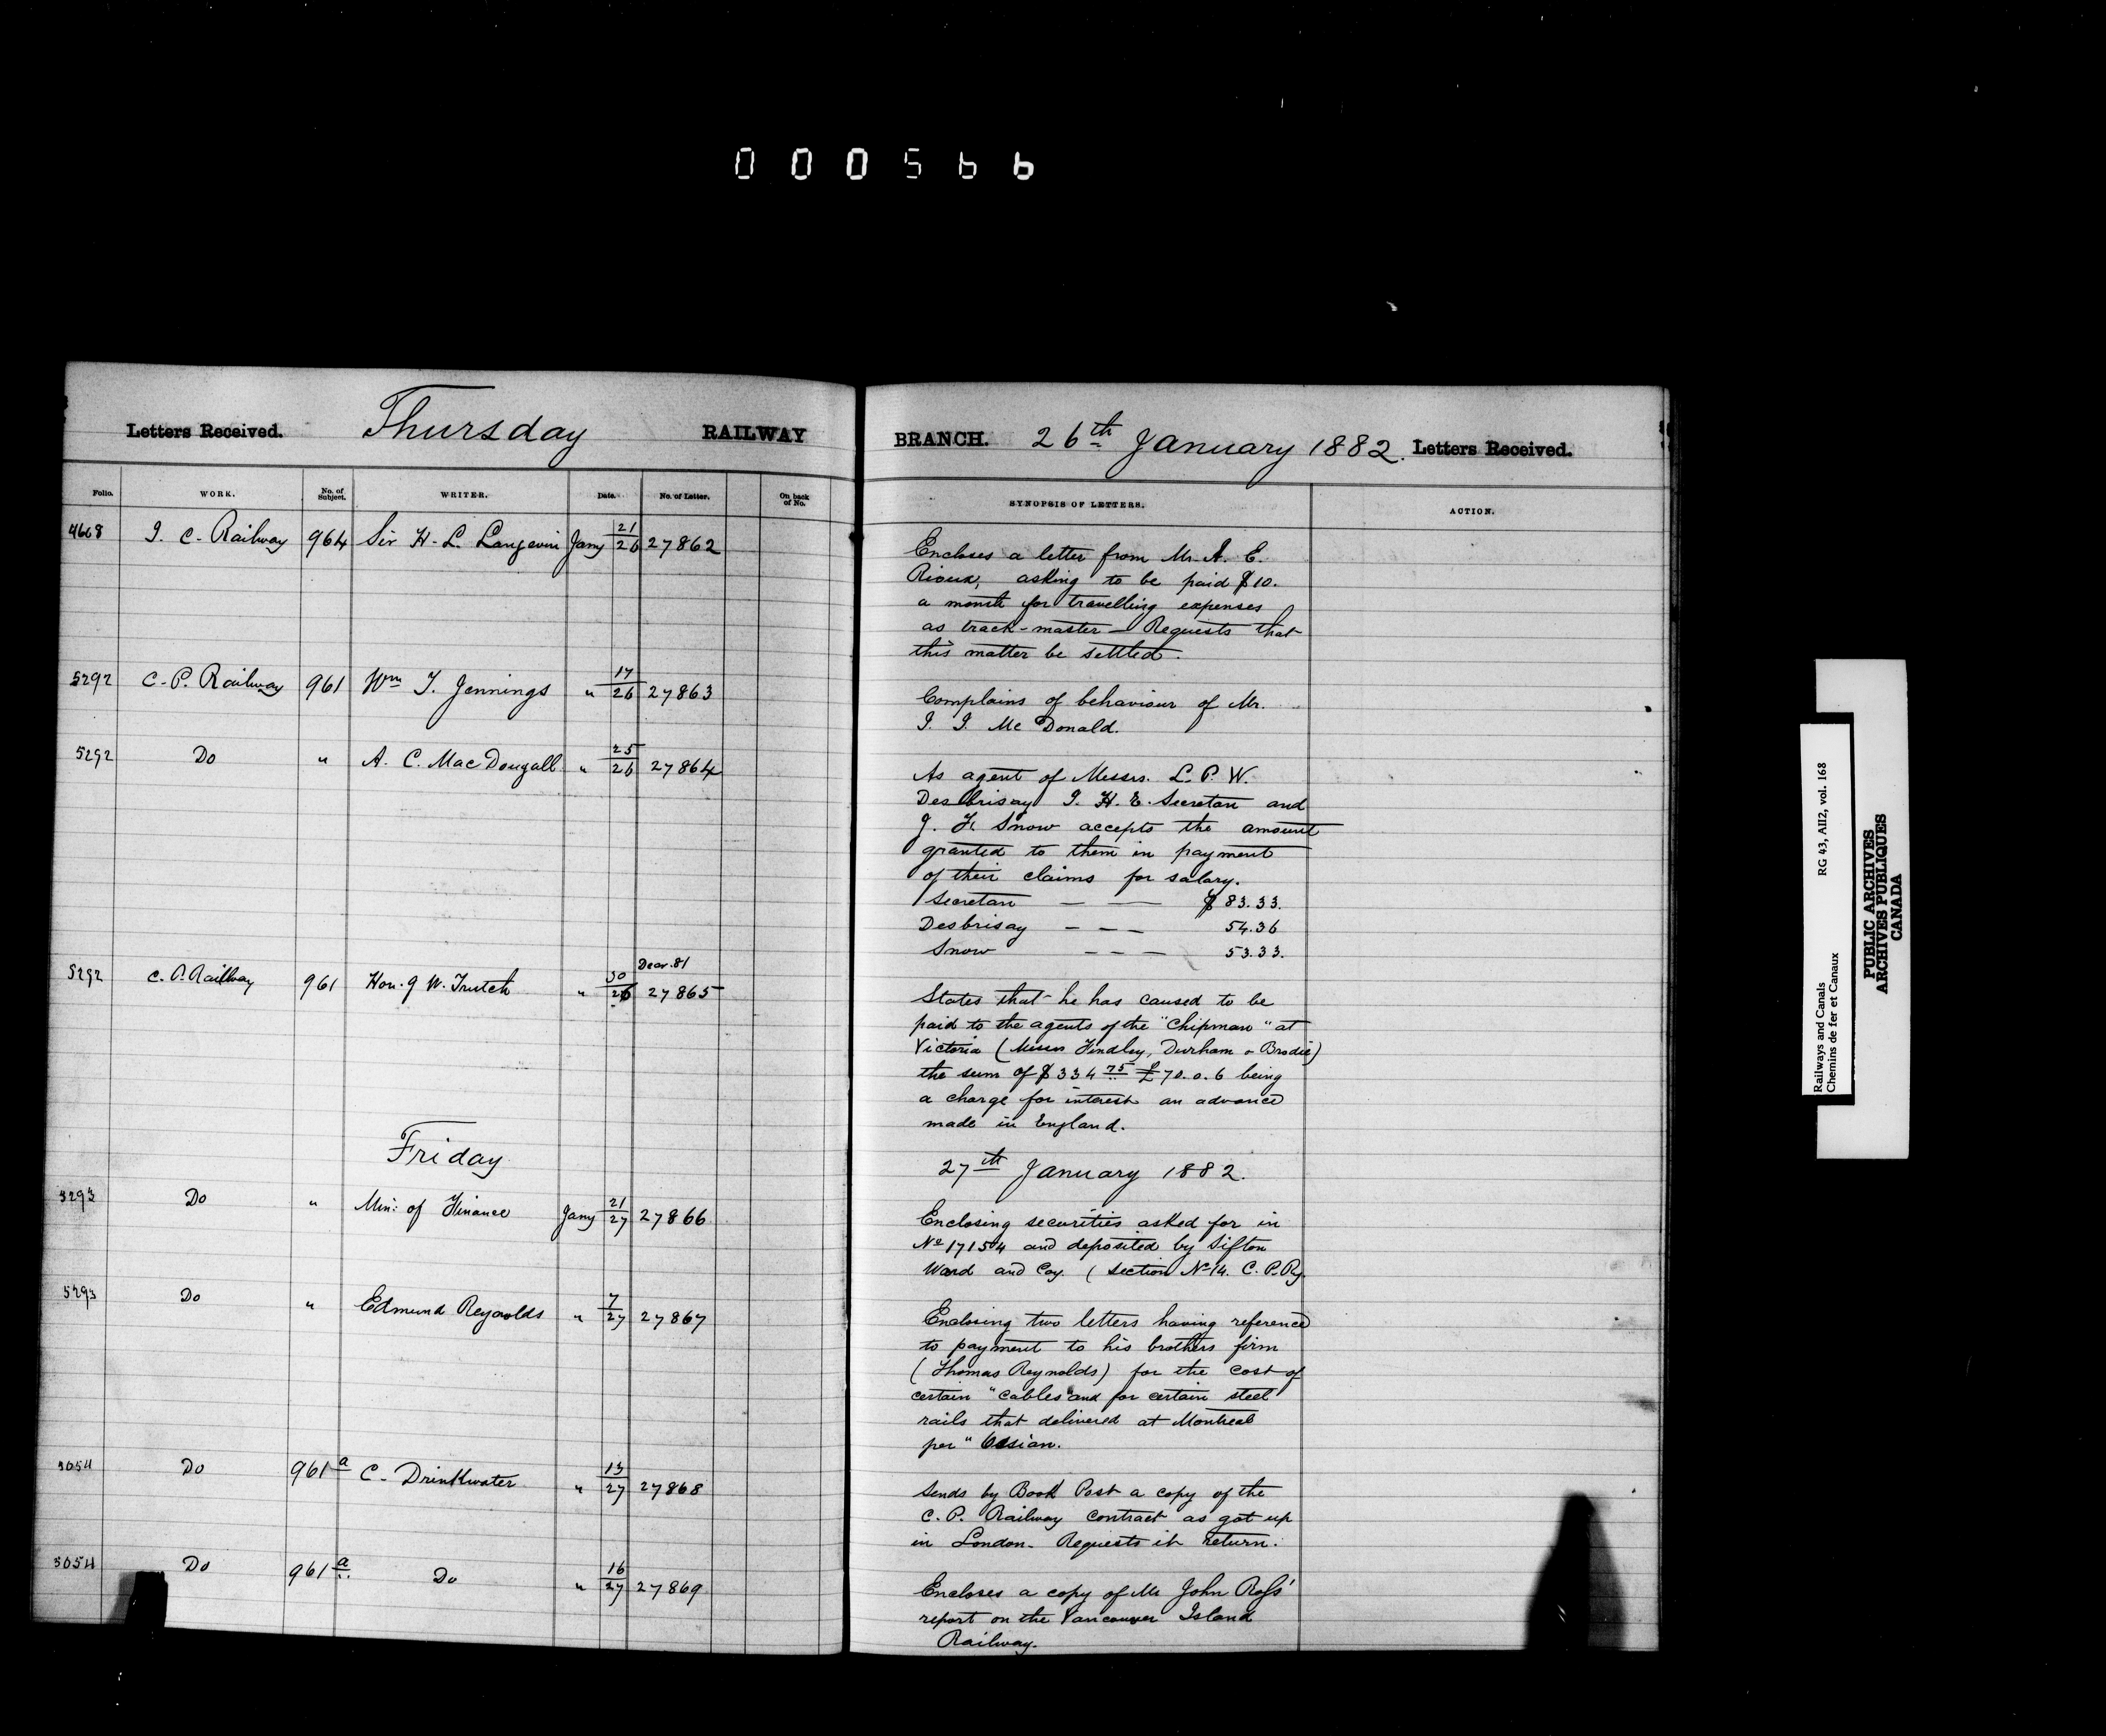 000566
Letters Received. Thursday RAILWAY BRANCH. 26th January 1882. Letters Received.
Folio. WORK. No. of Subject. WRITER. Date. No. of Letter. On back of No. SYNOPSIS OF LETTERS. ACTION.
4668 I. C. Railway 964 Sir H. L. Langevin Jany 21/26 27862
Encloses a letter from Mr. A. E.
Rioux, asking to be paid $10.
a month for travelling expenses
as track-master — Requests that
this matter be settled.
5292 C. P. Railway 961 Wm T. Jennings " 17/26 27863
Complains of behaviour of Mr.
I. I. McDonald.
5292 Do " A. C. MacDougall " 25/26 27864
As agent of Messrs. L. P. W.
Desbrisay I. H. E. Secretan and
J. F. Snow accepts the amount
granted to them in payment
of their claims for salary.
Secretan — — $83.33.
Desbrisay - - - 54.36
Snow - - - 53.33.
5292 C. P. Railway 961 Hon. J W. Trutch " 30 Decr. 81/26 27865
States that he has caused to be
paid to the agents of the "Chipman" at
Victoria (Messrs Findley, Durham & Brodie)
the sum of $334 75 £70.0.6 being
a charge for interest an advance
made in England.
Friday 27th January 1882.
5293 Do " Min: of Finance Jany 21/27 27866
Enclosing securities asked for in
No 17154 and deposited by Sifton
Ward and Coy. (Section No 14. C. P. Ry.
5293 Do " Edmund Reynolds " 7/27 27867
Enclosing two letters having reference
to payment to his brothers firm
(Thomas Reynolds) for the cost of
certain "cables" and for certain steel
rails that delivered at Montreal
per " Ossian.
5054 Do 961a C. Drinkwater " 13/27 27868
Sends by Book Post a copy of the
C. P. Railway contract as got up
in London. Requests it return.
5054 Do 961a Do " 16/27 27869
Encloses a copy of Mr John Ross'
report on the Vancouver Island
Railway.
Railways and Canals RG 43, AII2, vol. 168
Chemins de fer et Canaux
PUBLIC ARCHIVES
ARCHIVES PUBLIQUES
CANADA